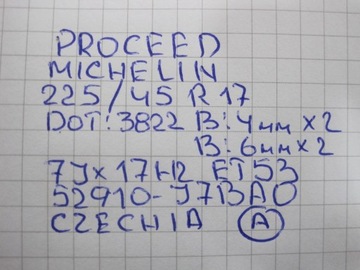 PROCEED
MICHELIN
225/45 R 17
DOT: 3822 B: 4mm x 2
B: 6mm x 2
7Jx17H2 ET53
52910-J7BA0
CZECHIA A